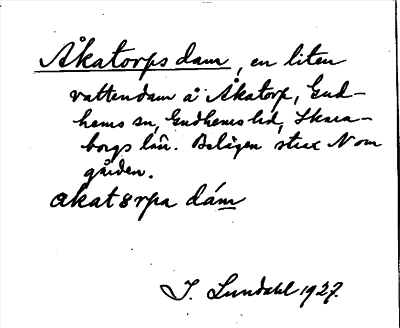 Åkatorps dam, en liten
vattendam å Åkatorp, Gud-
hems sn, Gudhems hd, Skara-
borgs län. Belägen strax N om
gården.
åkatårpa dám
I. Lundahl 1927.